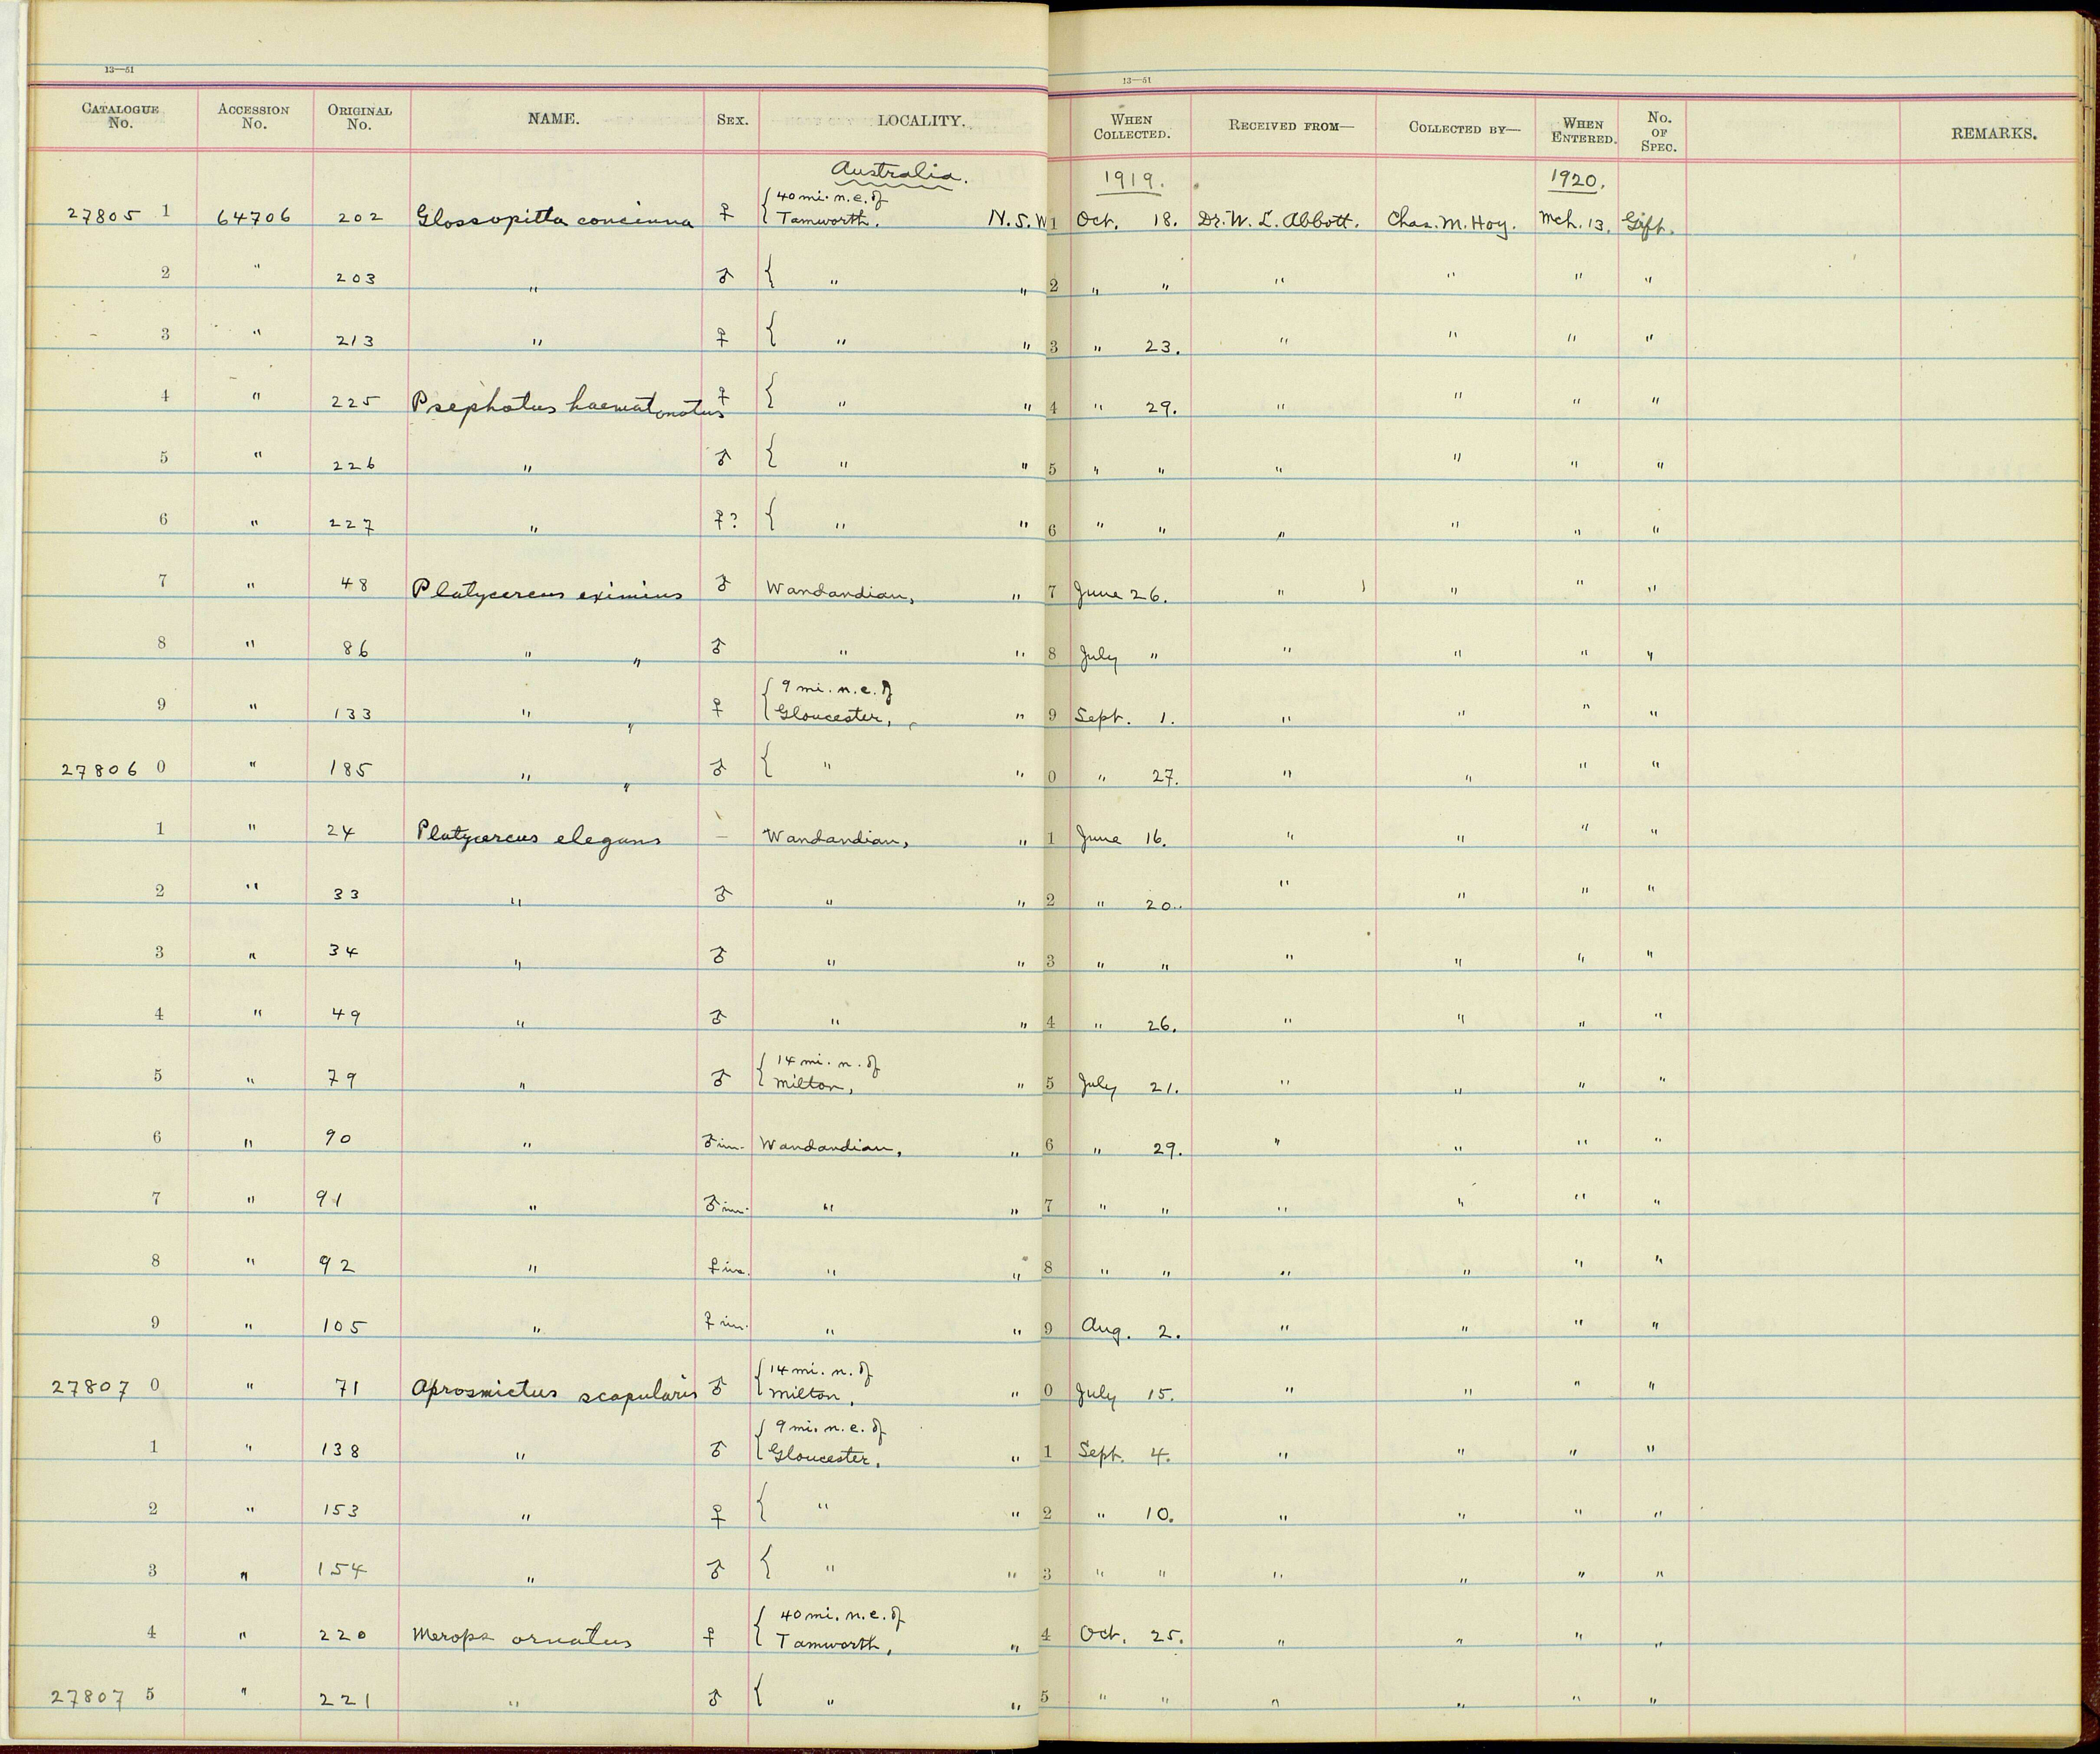 13—51 13—51
CATALOGUE No. ACCESSION No. ORIGINAL No. NAME. SEX. LOCALITY. WHEN COLLECTED. RECEIVED FROM— COLLECTED BY— WHEN ENTERED. No. OF SPEC. REMARKS.
Australia. 1919. 1920.
27805 1 64706 202 Glossopitta concinna ♀ { 40 mi. n.e. of Tamworth. N.S.W 1 Oct. 18. Dr. W. L. Abbott. Chas. M. Hoy. Mch. 13. Gift.
2 " 203 " ♂ { " " 2 " " " " " "
3 " 213 " ♀ { " " 3 " 23. " " " "
4 " 225 Psephotus haematonotus ♀ { " " 4 " 29. " " " "
5 " 226 " ♂ { " " 5 " " " " " "
6 " 227 " ♀? { " " 6 " " " " " "
7 " 48 Platycercus eximius ♂ Wandandian, " 7 June 26. " " " "
8 " 86 " " ♂ " " 8 July " " " " "
9 " 133 " " ♀ { 9 mi. n.e. of Gloucester, " 9 Sept. 1. " " " "
27806 0 " 185 " " ♂ { " " 0 " 27. " " " "
1 " 24 Platycercus elegans — Wandandian, " 1 June 16. " " " "
2 " 33 " ♂ " " 2 " 20. " " " "
3 " 34 " ♂ " " 3 " " " " " "
4 " 49 " ♂ " " 4 " 26. " " " "
5 " 79 " ♂ { 14 mi. n. of Milton, " 5 July 21. " " " "
6 " 90 " ♂ im. Wandandian, " 6 " 29. " " " "
7 " 91 " ♂ im. " " 7 " " " " " "
8 " 92 " ♀ im. " " 8 " " " " " "
9 " 105 " ♀ im. " " 9 Aug. 2. " " " "
27807 0 " 71 Aprosmictus scapularis ♂ { 14 mi. n. of Milton, " 0 July 15. " " " "
1 " 138 " ♂ { 9 mi. n.e. of Gloucester, " 1 Sept. 4. " " " "
2 " 153 " ♀ { " " 2 " 10. " " " "
3 " 154 " ♂ { " " 3 " " " " " "
4 " 220 Merops ornatus ♀ { 40 mi. n.e. of Tamworth, " 4 Oct. 25. " " " "
27807 5 " 221 " ♂ { " " 5 " " " " " "